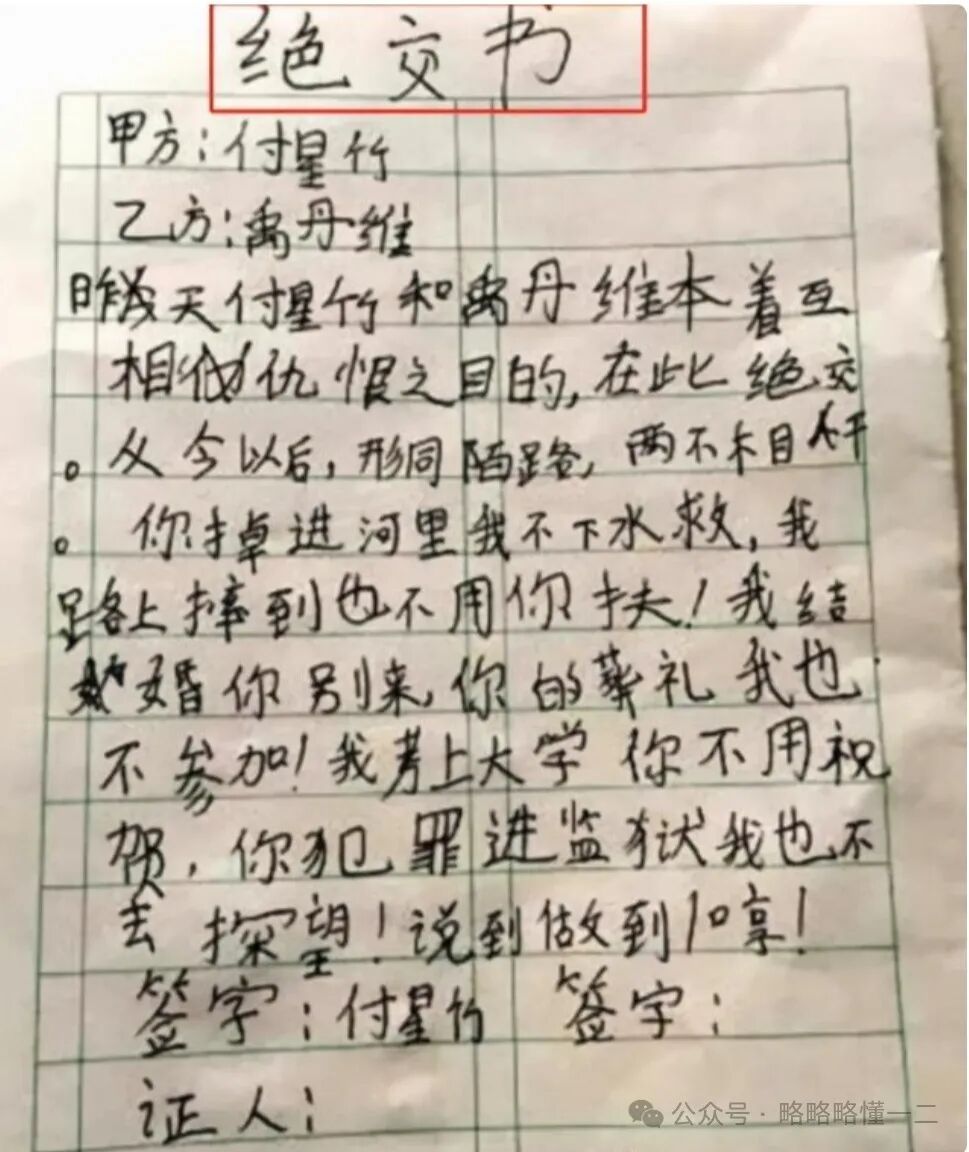 绝交书
甲方:付星竹
乙方:禹丹维
昨天付星竹和禹丹维本着互
相仇恨之目的,在此绝交
。从今以后,形同陌路,两不相干
。你掉进河里我不下水救,我
路上摔到也不用你扶!我结
婚你别来,你的葬礼我也
不参加!我考上大学你不用祝
贺,你犯罪进监狱我也不
去探望!说到做到!哼!
签字:付星竹 签字:
证人:
公众号·略略略懂一二